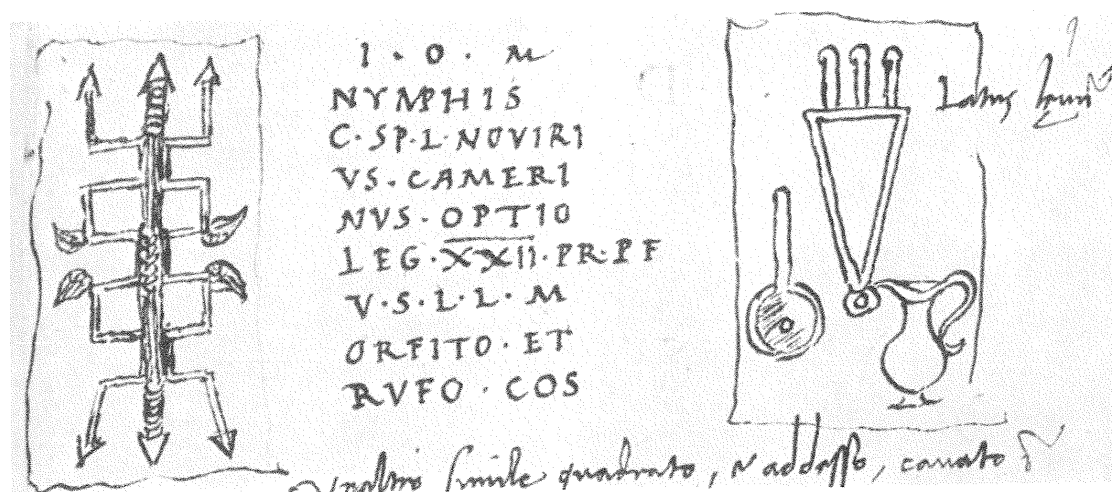 I · O · M
NYMPHIS
C · SP · L · NOVIRI
VS · CAMERI
NVS · OPTIO
LEG · XXII · PR · P F
V · S · L · L · M
ORFITO · ET
RVFO · COS
Latus
simile quadrato, addosso, cavato